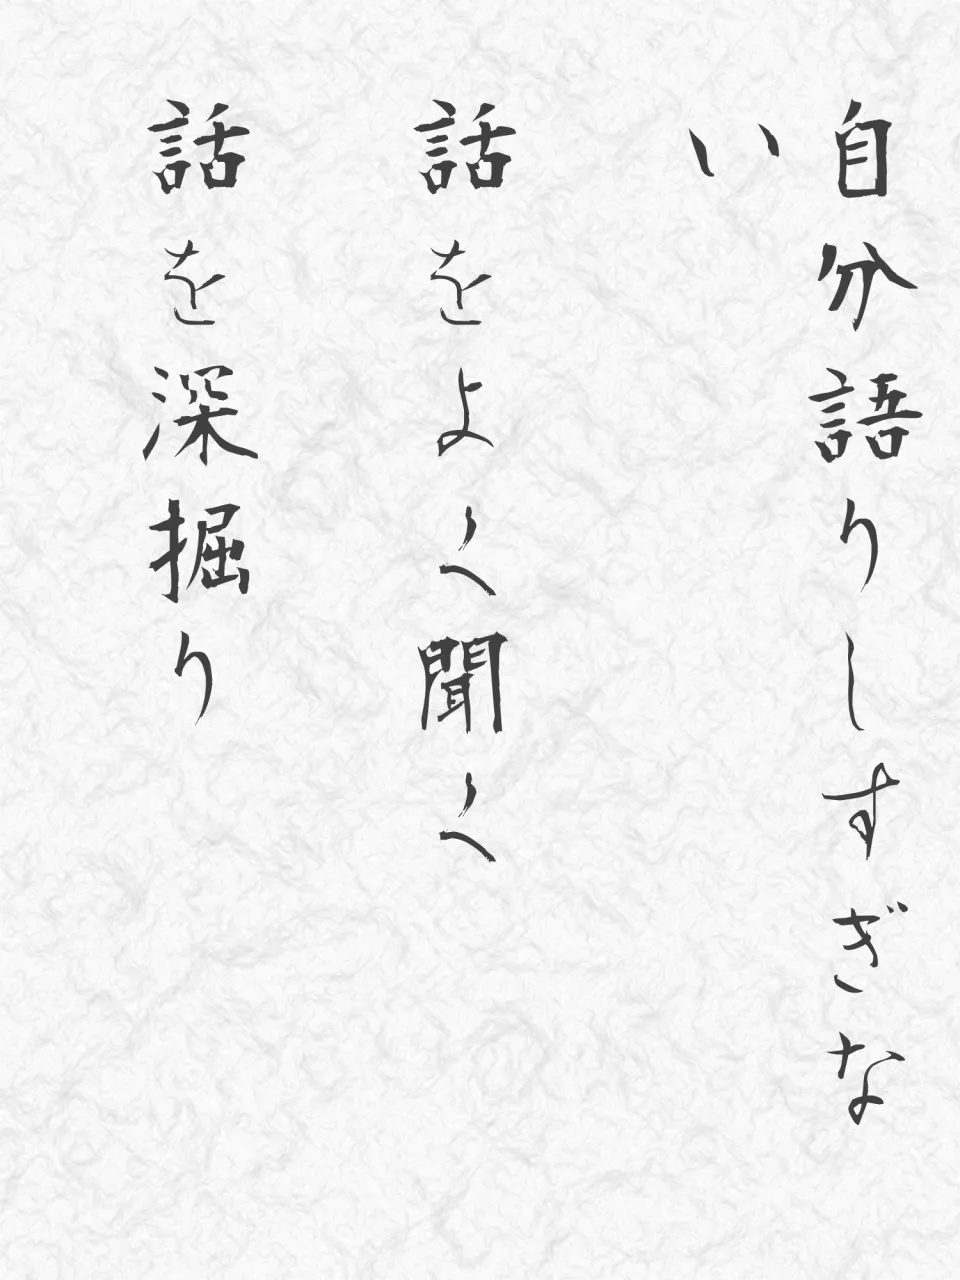 自分語りしすぎな
い
話をよく聞く
話を深掘り